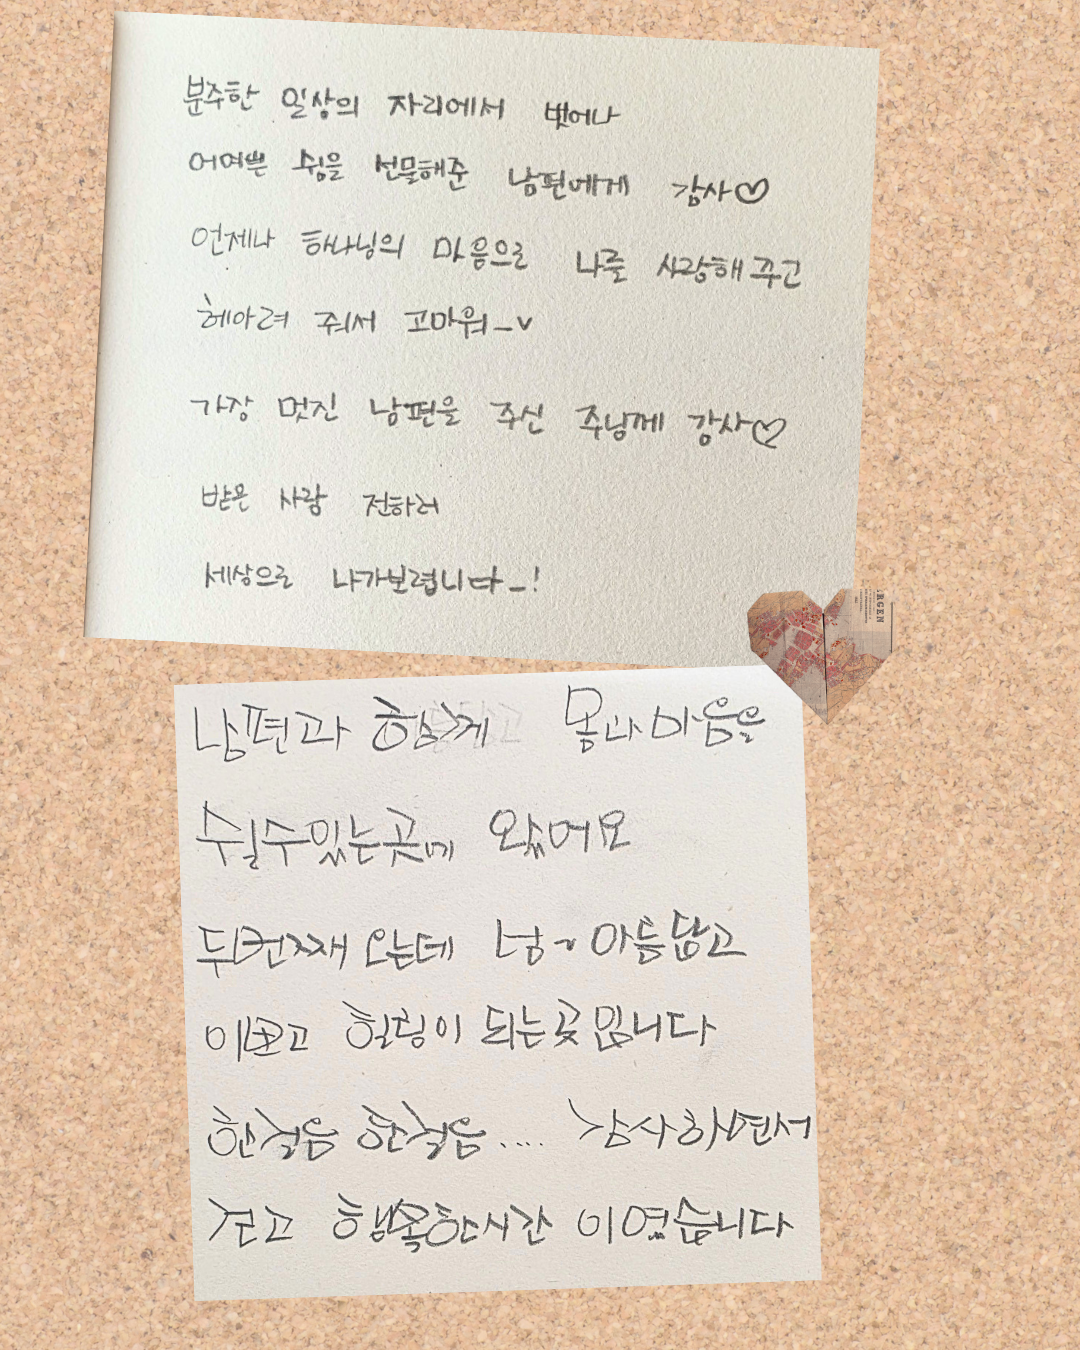 분주한 일상의 자리에서 벗어나
어여쁜 쉼을 선물해준 남편에게 감사♡
언제나 하나님의 마음으로 나를 사랑해 주고
헤아려 줘서 고마워_v
가장 멋진 남편을 주신 주님께 감사♡
받은 사랑 전하러
세상으로 나가보렵니다_!
RGEN
남편과 함께 몸과 마음을
쉴수있는곳에 왔어요
두번째 오는데 넘~아름답고
이쁘고 힐링이 되는곳입니다
한걸음 한걸음.... 감사하면서
걷고 행복한시간 이였습니다